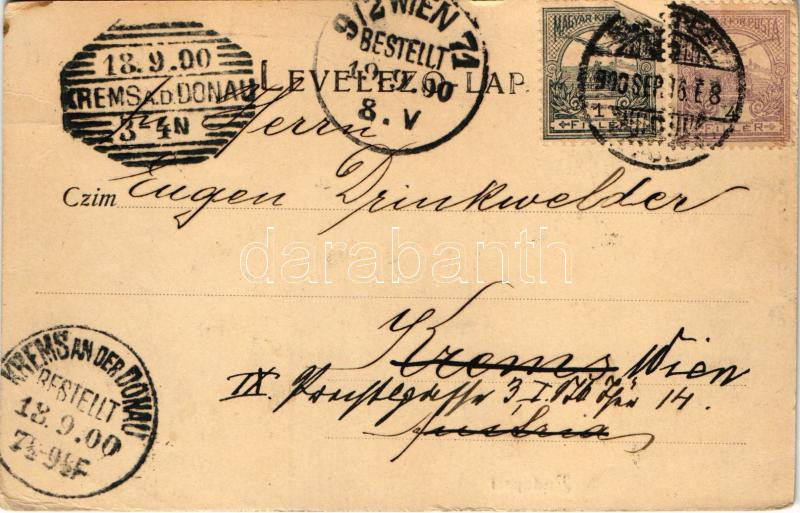 18.9.00
KREMS A.D. DONAU
3-4N
9/2 WIEN 71
BESTELLT
19.9.00
8.V
MAGYAR KIR. POSTA
MAGYAR KIR. POSTA
900 SEP. 16. E 8
1
FILLÉR
FILLÉR
LEVELEZŐ-LAP.
Herrn
Czim Eugen Drinkwelder
darabanth
Krems Wien
IX. 3, I. Stk Thür 14.
Austria
KREMS AN DER DONAU
BESTELLT
18.9.00
7½-9½F